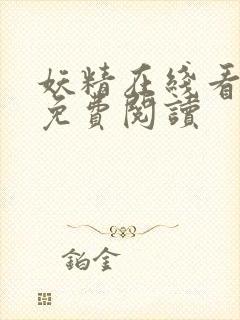 妖精在綫看
免費閱讀
鉑金